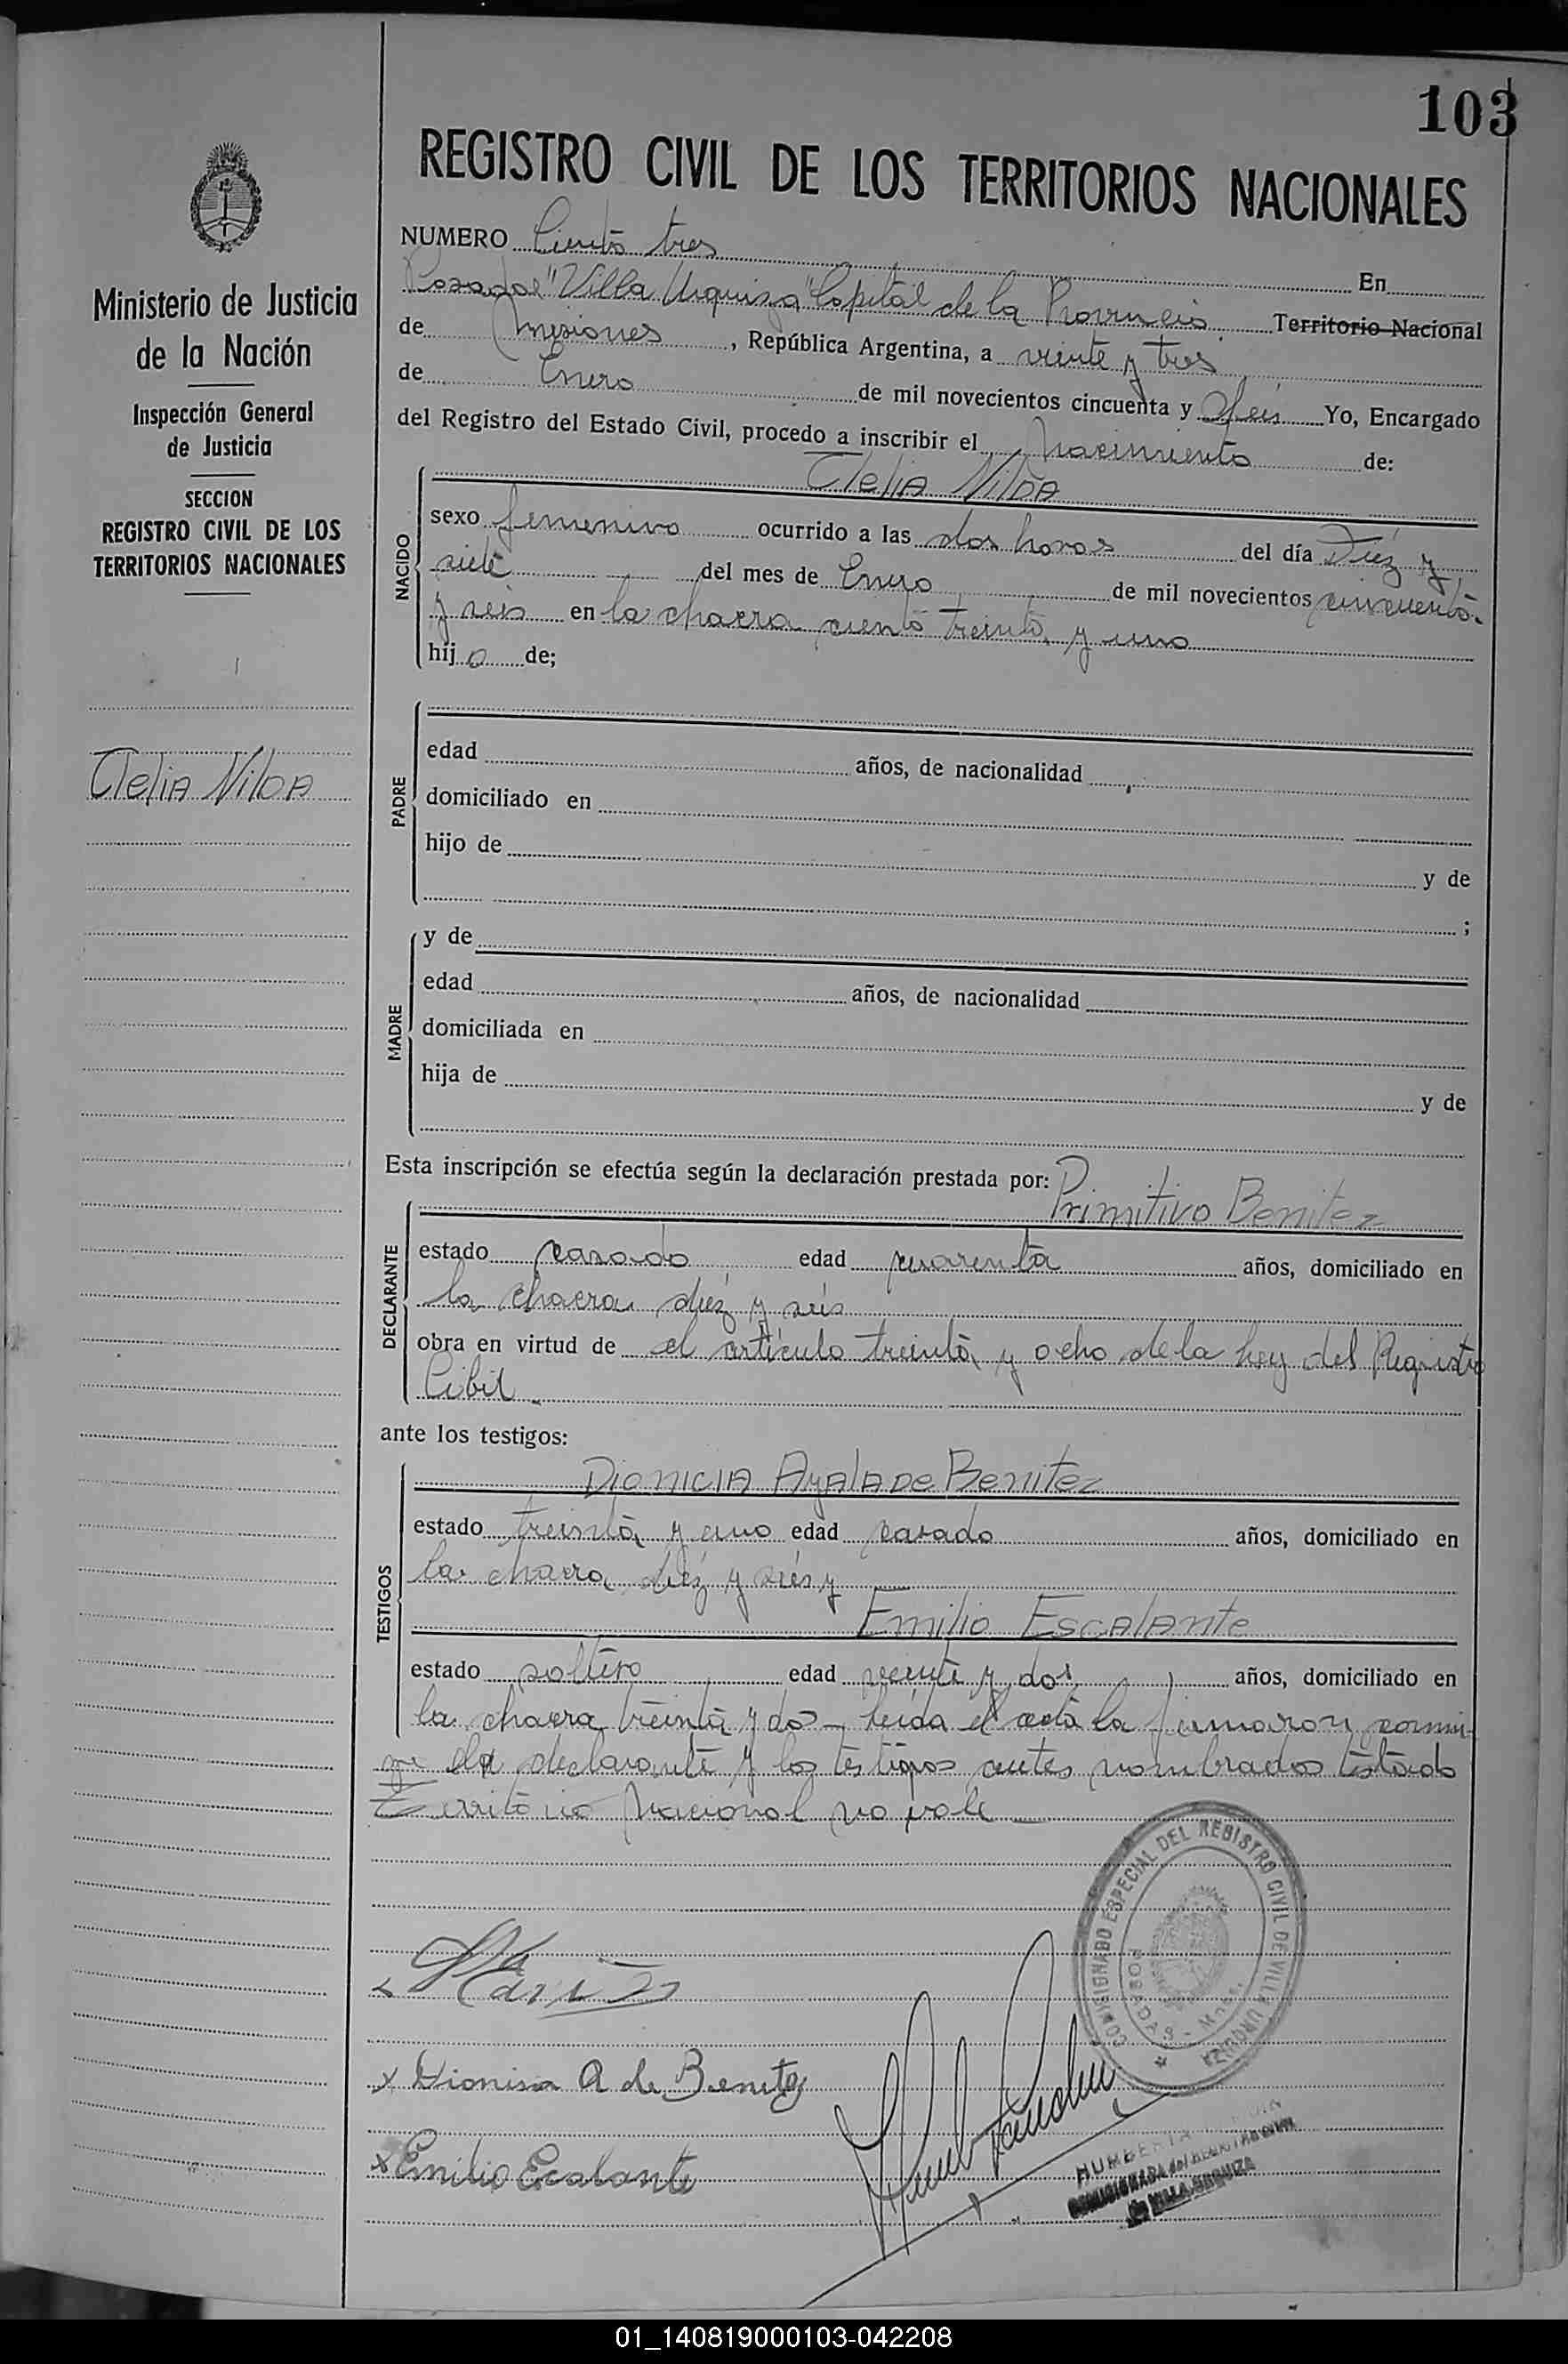 103
REGISTRO CIVIL DE LOS TERRITORIOS NACIONALES
Ministerio de Justicia
de la Nación
Inspección General
de Justicia
SECCION
REGISTRO CIVIL DE LOS
TERRITORIOS NACIONALES
Clelia Nilda
NUMERO Ciento tres En
Posadas "Villa Urquiza" Capital de la Provincia Territorio Nacional
de Misiones, República Argentina, a veinte y tres
de Enero de mil novecientos cincuenta y Seis Yo, Encargado
del Registro del Estado Civil, procedo a inscribir el Nacimiento de:
Clelia Nilda
NACIDO
sexo femenino ocurrido a las dos horas del día Diez y
siete del mes de Enero de mil novecientos cincuenta
y seis en la chacra ciento treinta y uno
hij a de;
PADRE
edad años, de nacionalidad
domiciliado en
hijo de y de
;
MADRE
y de
edad años, de nacionalidad
domiciliada en
hija de y de
Esta inscripción se efectúa según la declaración prestada por: Primitivo Benitez
DECLARANTE
estado casado edad cuarenta años, domiciliado en
la chacra diez y seis
obra en virtud de el articulo treinta y ocho de la Ley del Registro
Cibil
ante los testigos:
TESTIGOS
Dionicia Ayala de Benitez
estado treinta y uno edad casada años, domiciliado en
la chacra diez y seis y
Emilio Escalante
estado soltero edad veinte y dos años, domiciliado en
la chacra treinta y dos - leida el acta la firmaron conmi-
go el declarante y los testigos antes nombrados testado
Territorio Nacional no vale
x Dionisia A de Benitez
x Emilio Escalante
COMISIONADO ESPECIAL DEL REGISTRO CIVIL DE VILLA URQUIZA
POSADAS - Mnes.
COMISIONADA del REGISTRO CIVIL
de VILLA URQUIZA
01_140819000103-042208